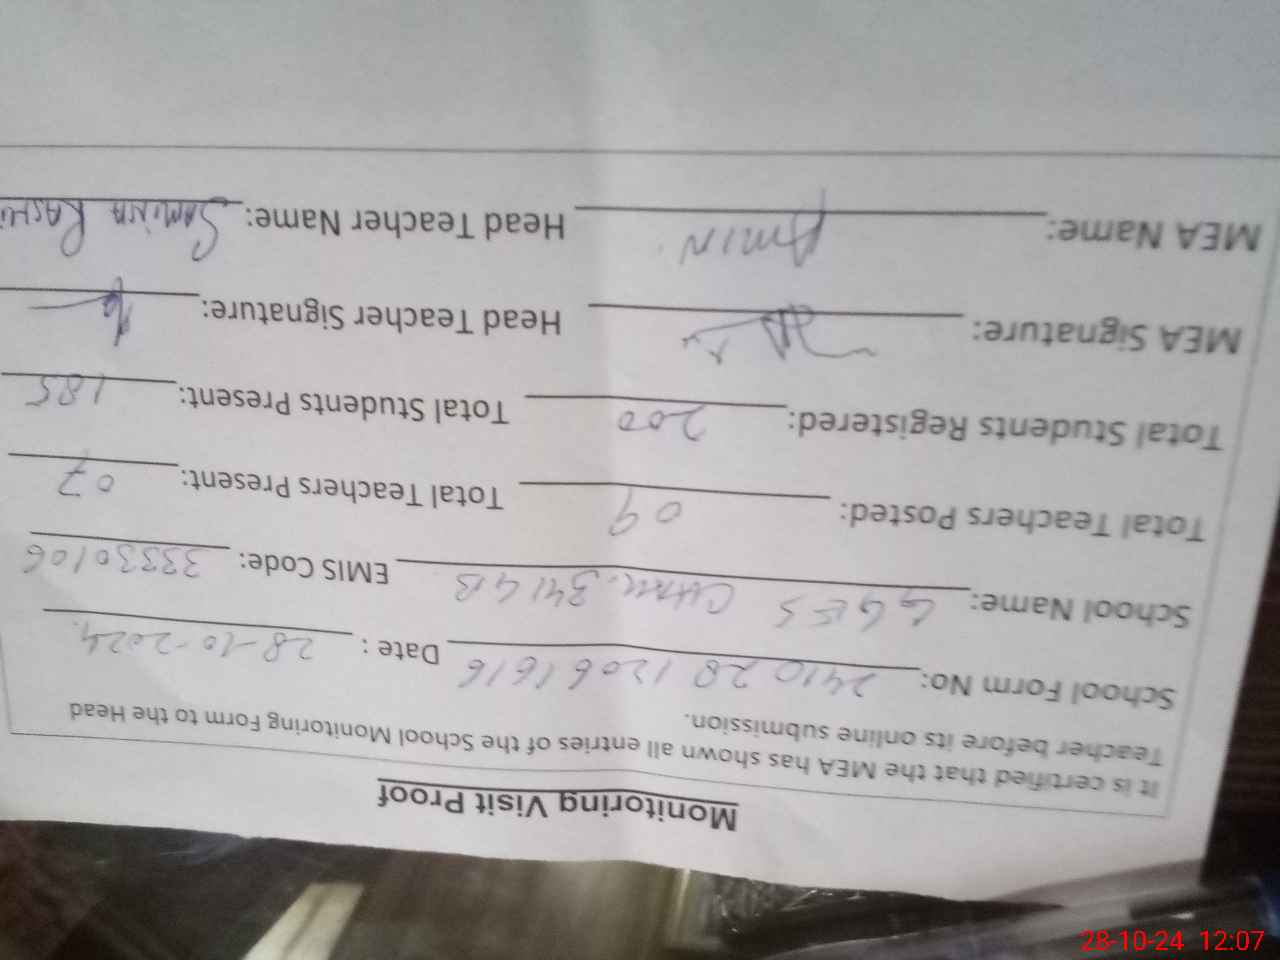 Monitoring Visit Proof
It is certified that the MEA has shown all entries of the School Monitoring Form to the Head
Teacher before its online submission.
School Form No: 2410 28 1206 1616 Date : 28-10-2024.
School Name: GGES CHAK. 341 GB EMIS Code: 33330106
Total Teachers Posted: 09 Total Teachers Present: 07
Total Students Registered: 200 Total Students Present: 185
MEA Signature: Head Teacher Signature:
MEA Name: AMIN Head Teacher Name: SAMINA
28-10-24 12:07